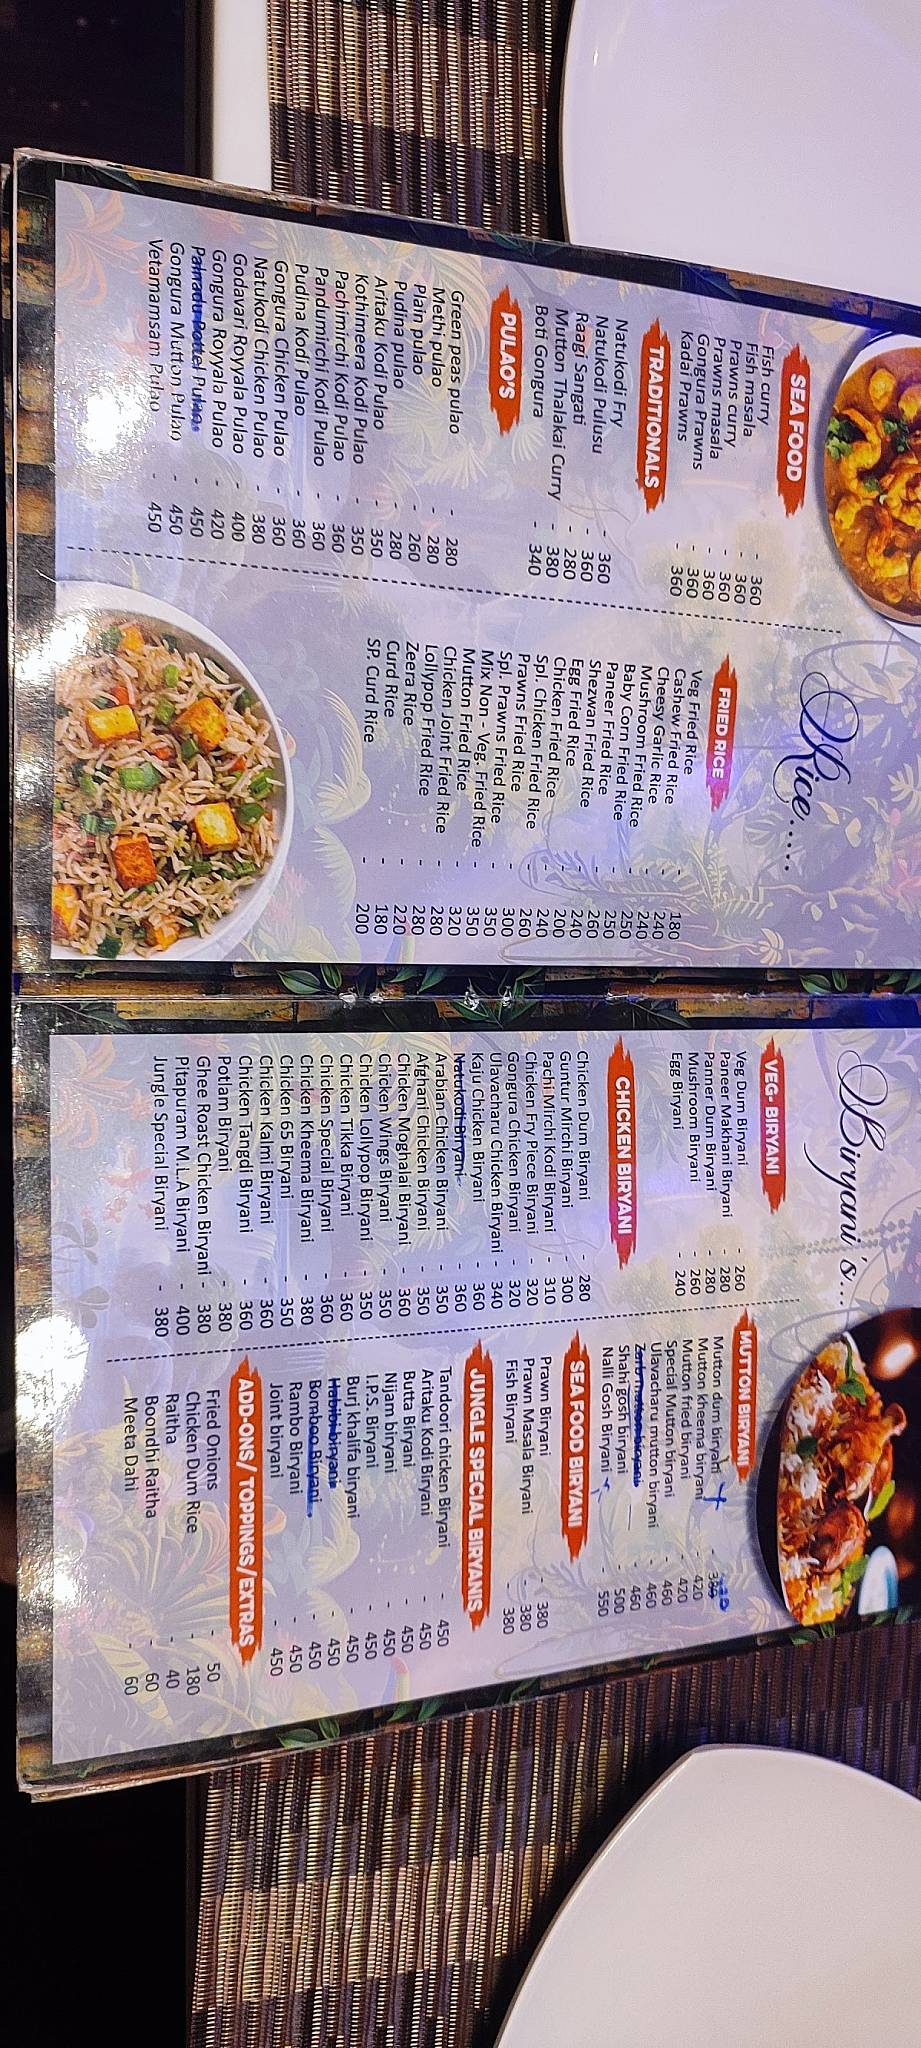 SEA FOOD
Fish curry - 360
Fish masala - 360
Prawns curry - 360
Prawns masala - 360
Gongura Prawns - 360
Kadai Prawns - 360
TRADITIONALS
Natukodi Fry - 360
Natukodi Pulusu - 360
Raagi Sangati - 280
Mutton Thalakai Curry - 380
Boti Gongura - 340
PULAO'S
Green peas pulao - 280
Methi pulao - 280
Plain pulao - 260
Pudina pulao - 280
Aritaku Kodi Pulao - 350
Kothimeera Kodi Pulao - 350
Pachimirchi Kodi Pulao - 360
Pandumirchi Kodi Pulao - 360
Pudina Kodi Pulao - 360
Gongura Chicken Pulao - 360
Natukodi Chicken Pulao - 380
Godavari Royyala Pulao - 400
Gongura Royyala Pulao - 420
Palnadu Pottel Pulao - 450
Gongura Mutton Pulao - 450
Vetamamsam Pulao - 450
Rice.....
FRIED RICE
Veg Fried Rice - 180
Cashew Fried Rice - 240
Cheesy Garlic Rice - 240
Mushroom Fried Rice - 250
Baby Corn Fried Rice - 250
Paneer Fried Rice - 260
Shezwan Fried Rice - 240
Egg Fried Rice - 200
Chicken Fried Rice - 240
Spl. Chicken Fried Rice - 260
Prawns Fried Rice - 300
Spl. Prawns Fried Rice - 350
Mix Non - Veg. Fried Rice - 350
Mutton Fried Rice - 320
Chicken Joint Fried Rice - 280
Lollypop Fried Rice - 280
Zeera Rice - 220
Curd Rice - 180
SP. Curd Rice - 200
Biryani's...
VEG- BIRYANI
Veg Dum Biryani - 260
Paneer Makhani Biryani - 280
Panner Dum Biryani - 280
Mushroom Biryani - 260
Egg Biryani - 240
CHICKEN BIRYANI
Chicken Dum Biryani - 280
Guntur Mirchi Biryani - 300
Pachi Mirchi Kodi Biryani - 310
Chicken Fry Piece Biryani - 320
Gongura Chicken Biryani - 320
Ulavacharu Chicken Biryani - 340
Kaju Chicken Biryani - 360
Natukodi Biryani - 360
Arabian Chicken Biryani - 350
Afghani Chicken Biryani - 350
Chicken Moghalai Biryani - 360
Chicken Wings Biryani - 350
Chicken Lollypop Biryani - 350
Chicken Tikka Biryani - 360
Chicken Special Biryani - 360
Chicken Kheema Biryani - 380
Chicken 65 Biryani - 350
Chicken Kalmi Biryani - 360
Chicken Tangdi Biryani - 360
Potlam Biryani - 380
Ghee Roast Chicken Biryani - 380
Pitapuram M.L.A Biryani - 400
Jungle Special Biryani - 380
MUTTON BIRYANI
Mutton dum biryani - 380
Mutton kheema biryani - 420
Mutton fried biryani - 420
Special Mutton biryani - 460
Ulavacharu mutton biryani - 460
mutton biryani - 460
Shahi gosh biryani - 500
Nalli Gosh Biryani - 550
SEA FOOD BIRYANI
Prawn Biryani - 380
Prawn Masala Biryani - 380
Fish Biryani - 380
JUNGLE SPECIAL BIRYANIS
Tandoori chicken Biryani - 450
Aritaku Kodi Biryani - 450
Butta Biryani - 450
Nijam biryani - 450
I.P.S. Biryani - 450
Burj khalifa biryani - 450
Habibi biryani - 450
Bomboo Biryani - 450
Rambo Biryani - 450
Joint biryani - 450
ADD-ONS/ TOPPINGS/EXTRAS
Fried Onions - 50
Chicken Dum Rice - 180
Raitha - 40
Boondhi Raitha - 60
Meeta Dahi - 60